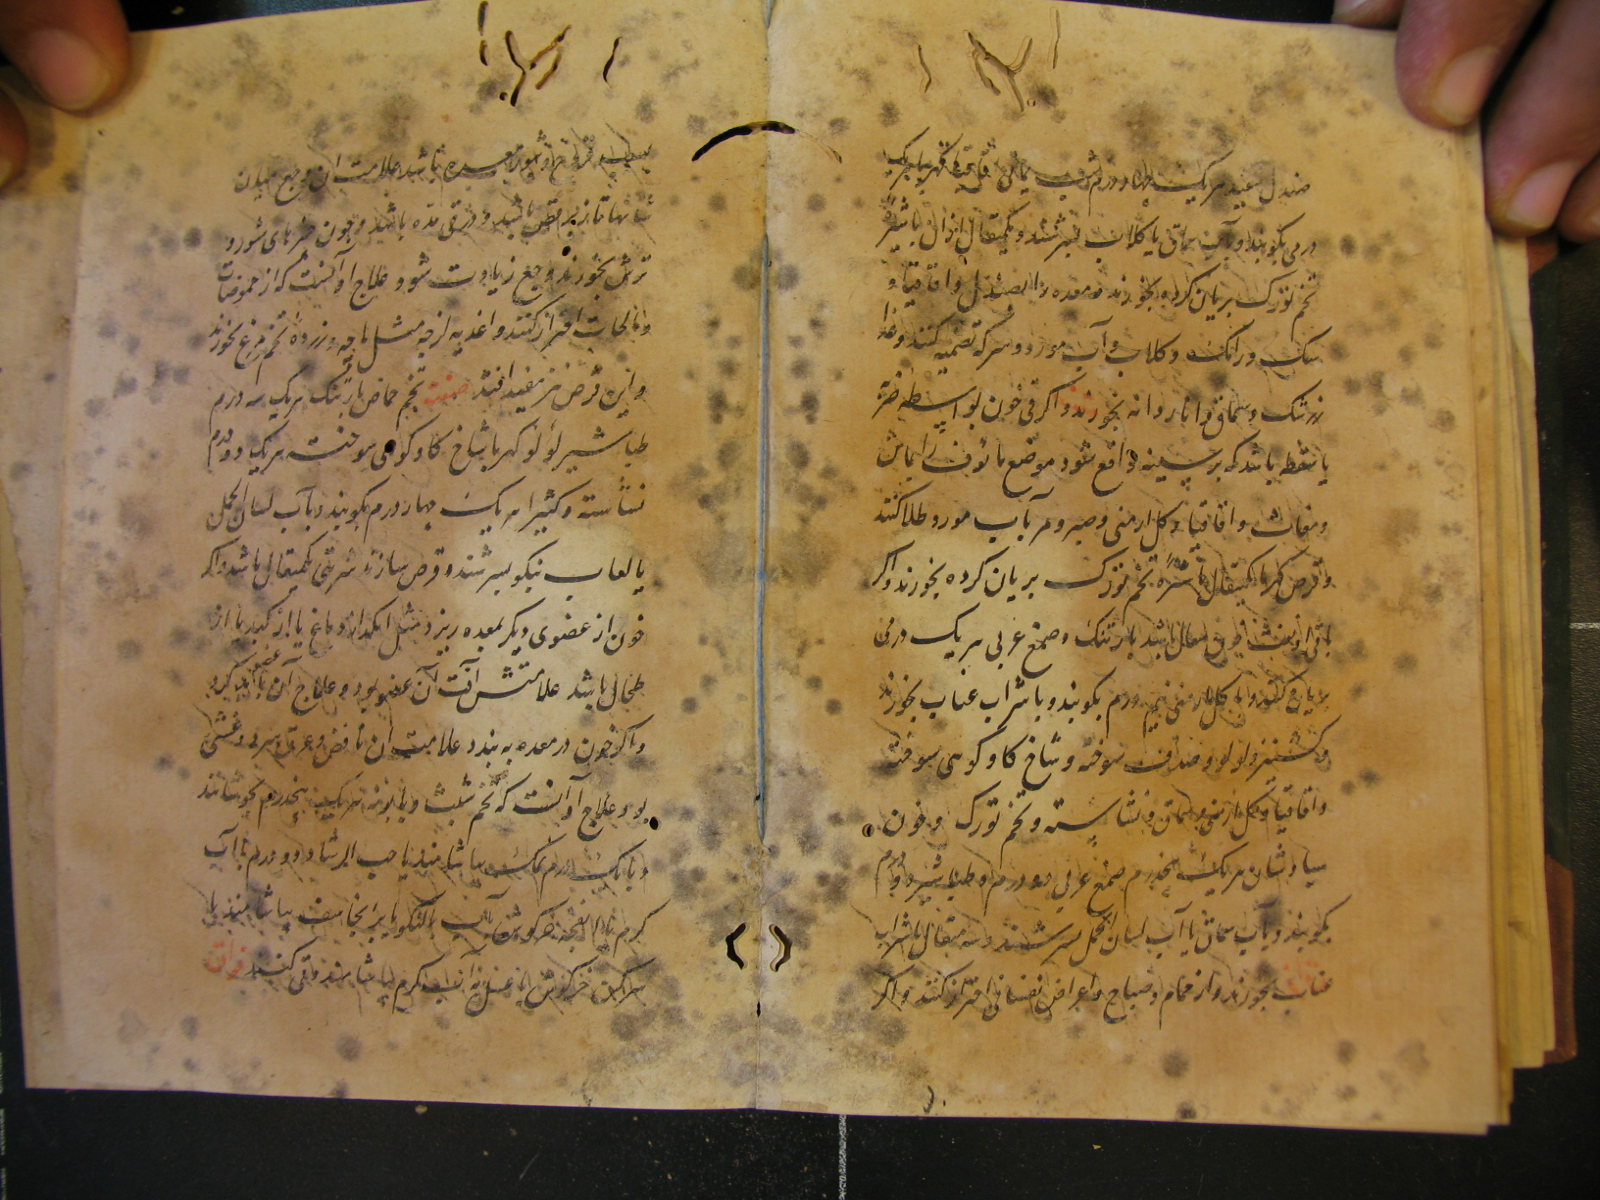 صندل سفید هریک چهار درم شب یمانی اقاقیا کهربا هریک
درمی بکوبند و بآب سماق یا کلاب بسرشند و یکمثقال ازان با شیره
تخم تورک بریان کرده بخورند و معده را بصندل و اقاقیا و
سک و رامک و کلاب و آب مورد و سرکه تضمید کنند و غذا
زرشک و سماق و انار دانه بخورند و اکر قی خون بواسطه ضربه
یا سقطه باشد که بر سینه واقع شود موضع مائوف را بماش
و مغاث و اقاقیا و کل ارمنی و صبر و مر بآب مورد طلا کنند
و قرص کهربا یکمثقال با شیره تخم تورک بریان کرده بخورند و اکر
باشد بارتنک و صمغ عربی هریک درمی
بریان کنند و با کل ارمنی نیم درم بکوبند و با شراب عناب بخورند
کشنیز و لولو و صدف سوخته و شاخ کاو کوهی سوخته
و اقاقیا و کل ارمنی و سماق و نشاسته و تخم تورک و خون
سیاوشان هریک پنجدرم صمغ عربی دو درم و طباشیر دو درم
بکوبند و بآب سماق یا آب لسان الحمل بسرشند و سه مثقال با شراب
عناب بخورند و از حمام و صیاح و اعراض نفسانی احتراز کنند و اکر
بسبب قروح و بثور معده باشد علامت آن وجع میان
شانها تا زیر قطن باشد و در قی مده باشد و چون چیزهای شور و
ترش بخورند وجع زیادت شود و علاج او آنست که از حموضات
و مالحات احتراز کنند و اغذیه لزجه مثل پاچه و زرده تخم مرغ بخورند
و این قرص نیز مفید افتد صفته تخم حماض بارتنک هریک سه درم
طباشیر لؤلؤ کهربا شاخ کاو کوهی سوخته هریک دو درم
نشاسته و کثیرا هریک چهار درم بکوبند و بآب لسان الحمل
یا لعاب نیکو بسرشند و قرص سازند شربتی یکمثقال باشد و اکر
خون از عضوی دیکر بمعده ریزد مثل انکه از دماغ یا از کبد یا از
طحال باشد علامتش آفت آن عضو بود و علاج آن عضو باید کرد
و اکر خون در معده به بندد علامت آن نافض و عرق سرد و غشی
بود و علاج او آنست که تخم شبت و بابونه هریک پنجدرم بجوشانند
و با یک درم نمک بیاشامند یا حب الرشاد دو درم با آب
کرم یا انفحه خرکوش بیاشامند یا
سرکین خرکوش با عسل و آب کرم بیاشامند و قی کنند فواق